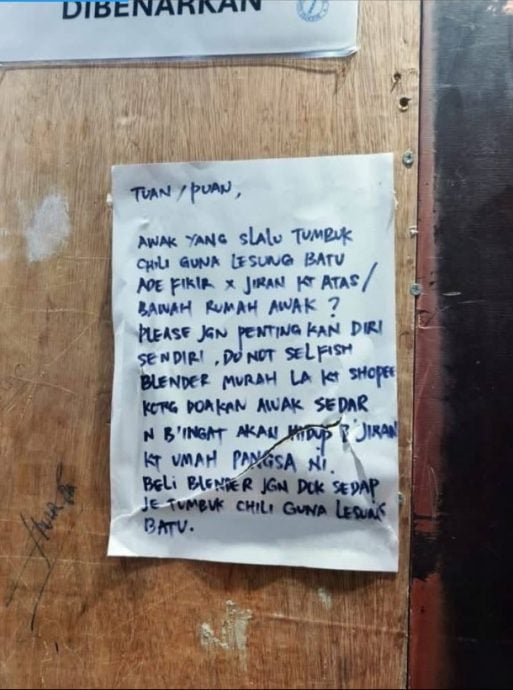 DIBENARKAN
TUAN / PUAN,
AWAK YANG SLALU TUMBUK
CHILI GUNA LESUNG BATU
ADE FIKIR X JIRAN KT ATAS /
BAWAH RUMAH AWAK ?
PLEASE JGN PENTINGKAN DIRI
SENDIRI. DO NOT SELFISH
BLENDER MURAH LA KT SHOPEE
DOAKAN AWAK SEDAR
N B'INGAT AKAN HIDUP B'JIRAN
KT UMAH PANGSA NI.
BELI BLENDER JGN DOK SEDAP
JE TUMBUK CHILI GUNA LESUNG
BATU.